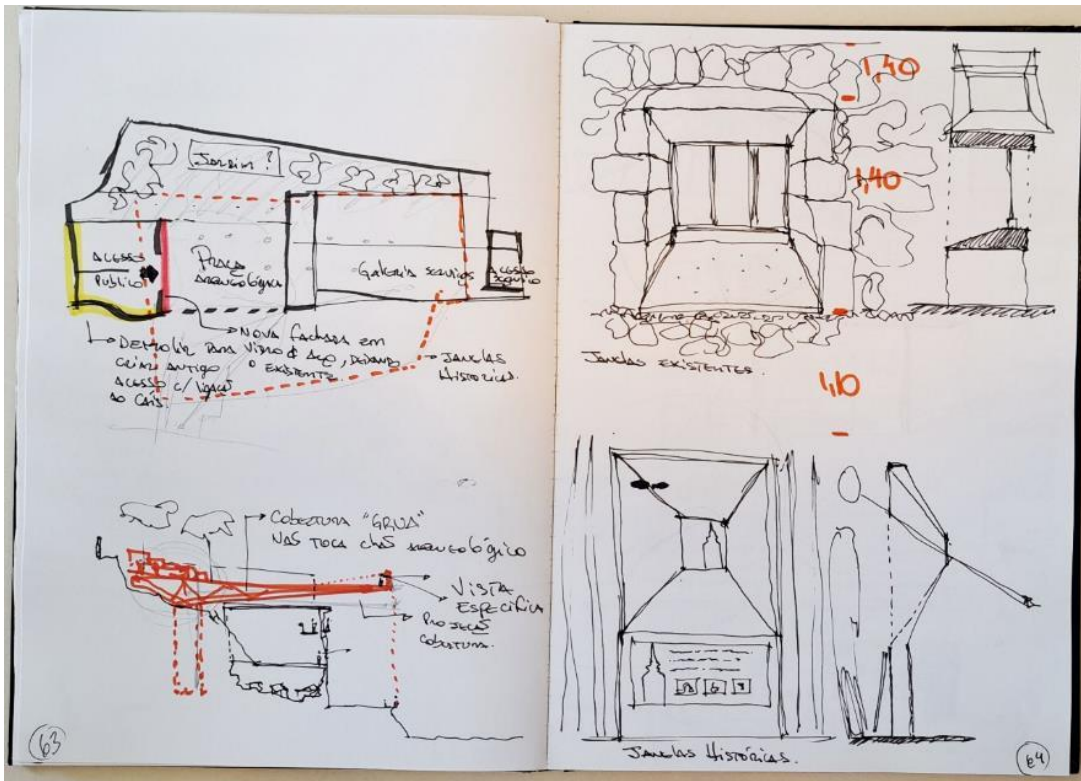 Jardim ?
ACESSO
PUBLICO
PRAÇA
ARQUEOLÓGICA
Galeria serviços
ACESSO
SERVIÇO
DEMOLIR PARA
CRIAR ANTIGO
ACESSO C/ LIGAÇÃO
AO CAIS.
NOVA fachada em
VIDRO E AÇO, DEIXANDO
O EXISTENTE.
JANELAS
HISTÓRICAS.
COBERTURA "GRUA"
NAS TOCA chão ARQUEOLÓGICO
VISTA
ESPECÍFICA
PROJEÇÃO
COBERTURA.
63
1,40
1,40
JANELAS EXISTENTES.
1,10
JANELAS HISTÓRICAS.
64